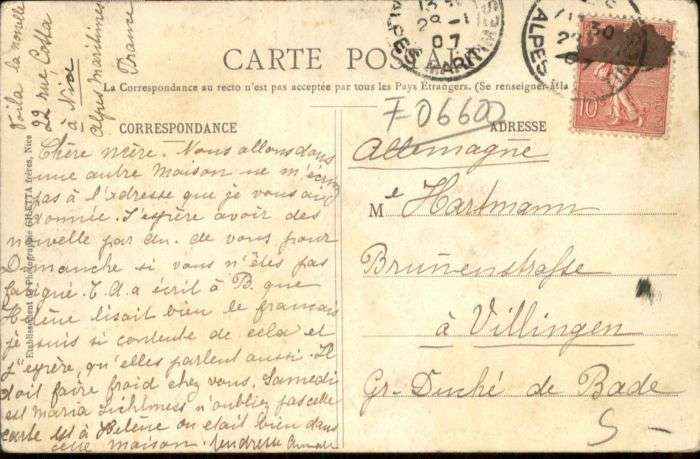 CARTE POSTALE
La Correspondance au recto n'est pas acceptée par tous les Pays Étrangers. (Se renseigner à la
CORRESPONDANCE
ADRESSE
F 06600
Voila la nouvelle
22 rue Cotta
à Nice
Alpes maritimes
France
Établissement de Photographie GILETTA frères, Nice
Chère mère. Nous allons dans
une autre maison ne m'écrivez
pas à l'adresse que je vous ai
donnée. J'espère avoir des
nouvelle par de vous pour
Dimanche si vous n'êtes pas
fatigué. T. A. a écrit à B. que
Helène lisait bien le français
je suis si contente de cela et
j'espère, qu'elles parlent aussi. Il
doit faire froid chez vous. Samedi
est Maria Lichtmess n'oubliez pas cette
carte est à Helène on était bien dans
cette maison. tendresse
Allemagne
Me Hartmann
Brunenstrasse
à Villingen
Gr-Duché de Bade
S-
29-1
07
ALPES MARITIMES
ALPES
30
07
10c